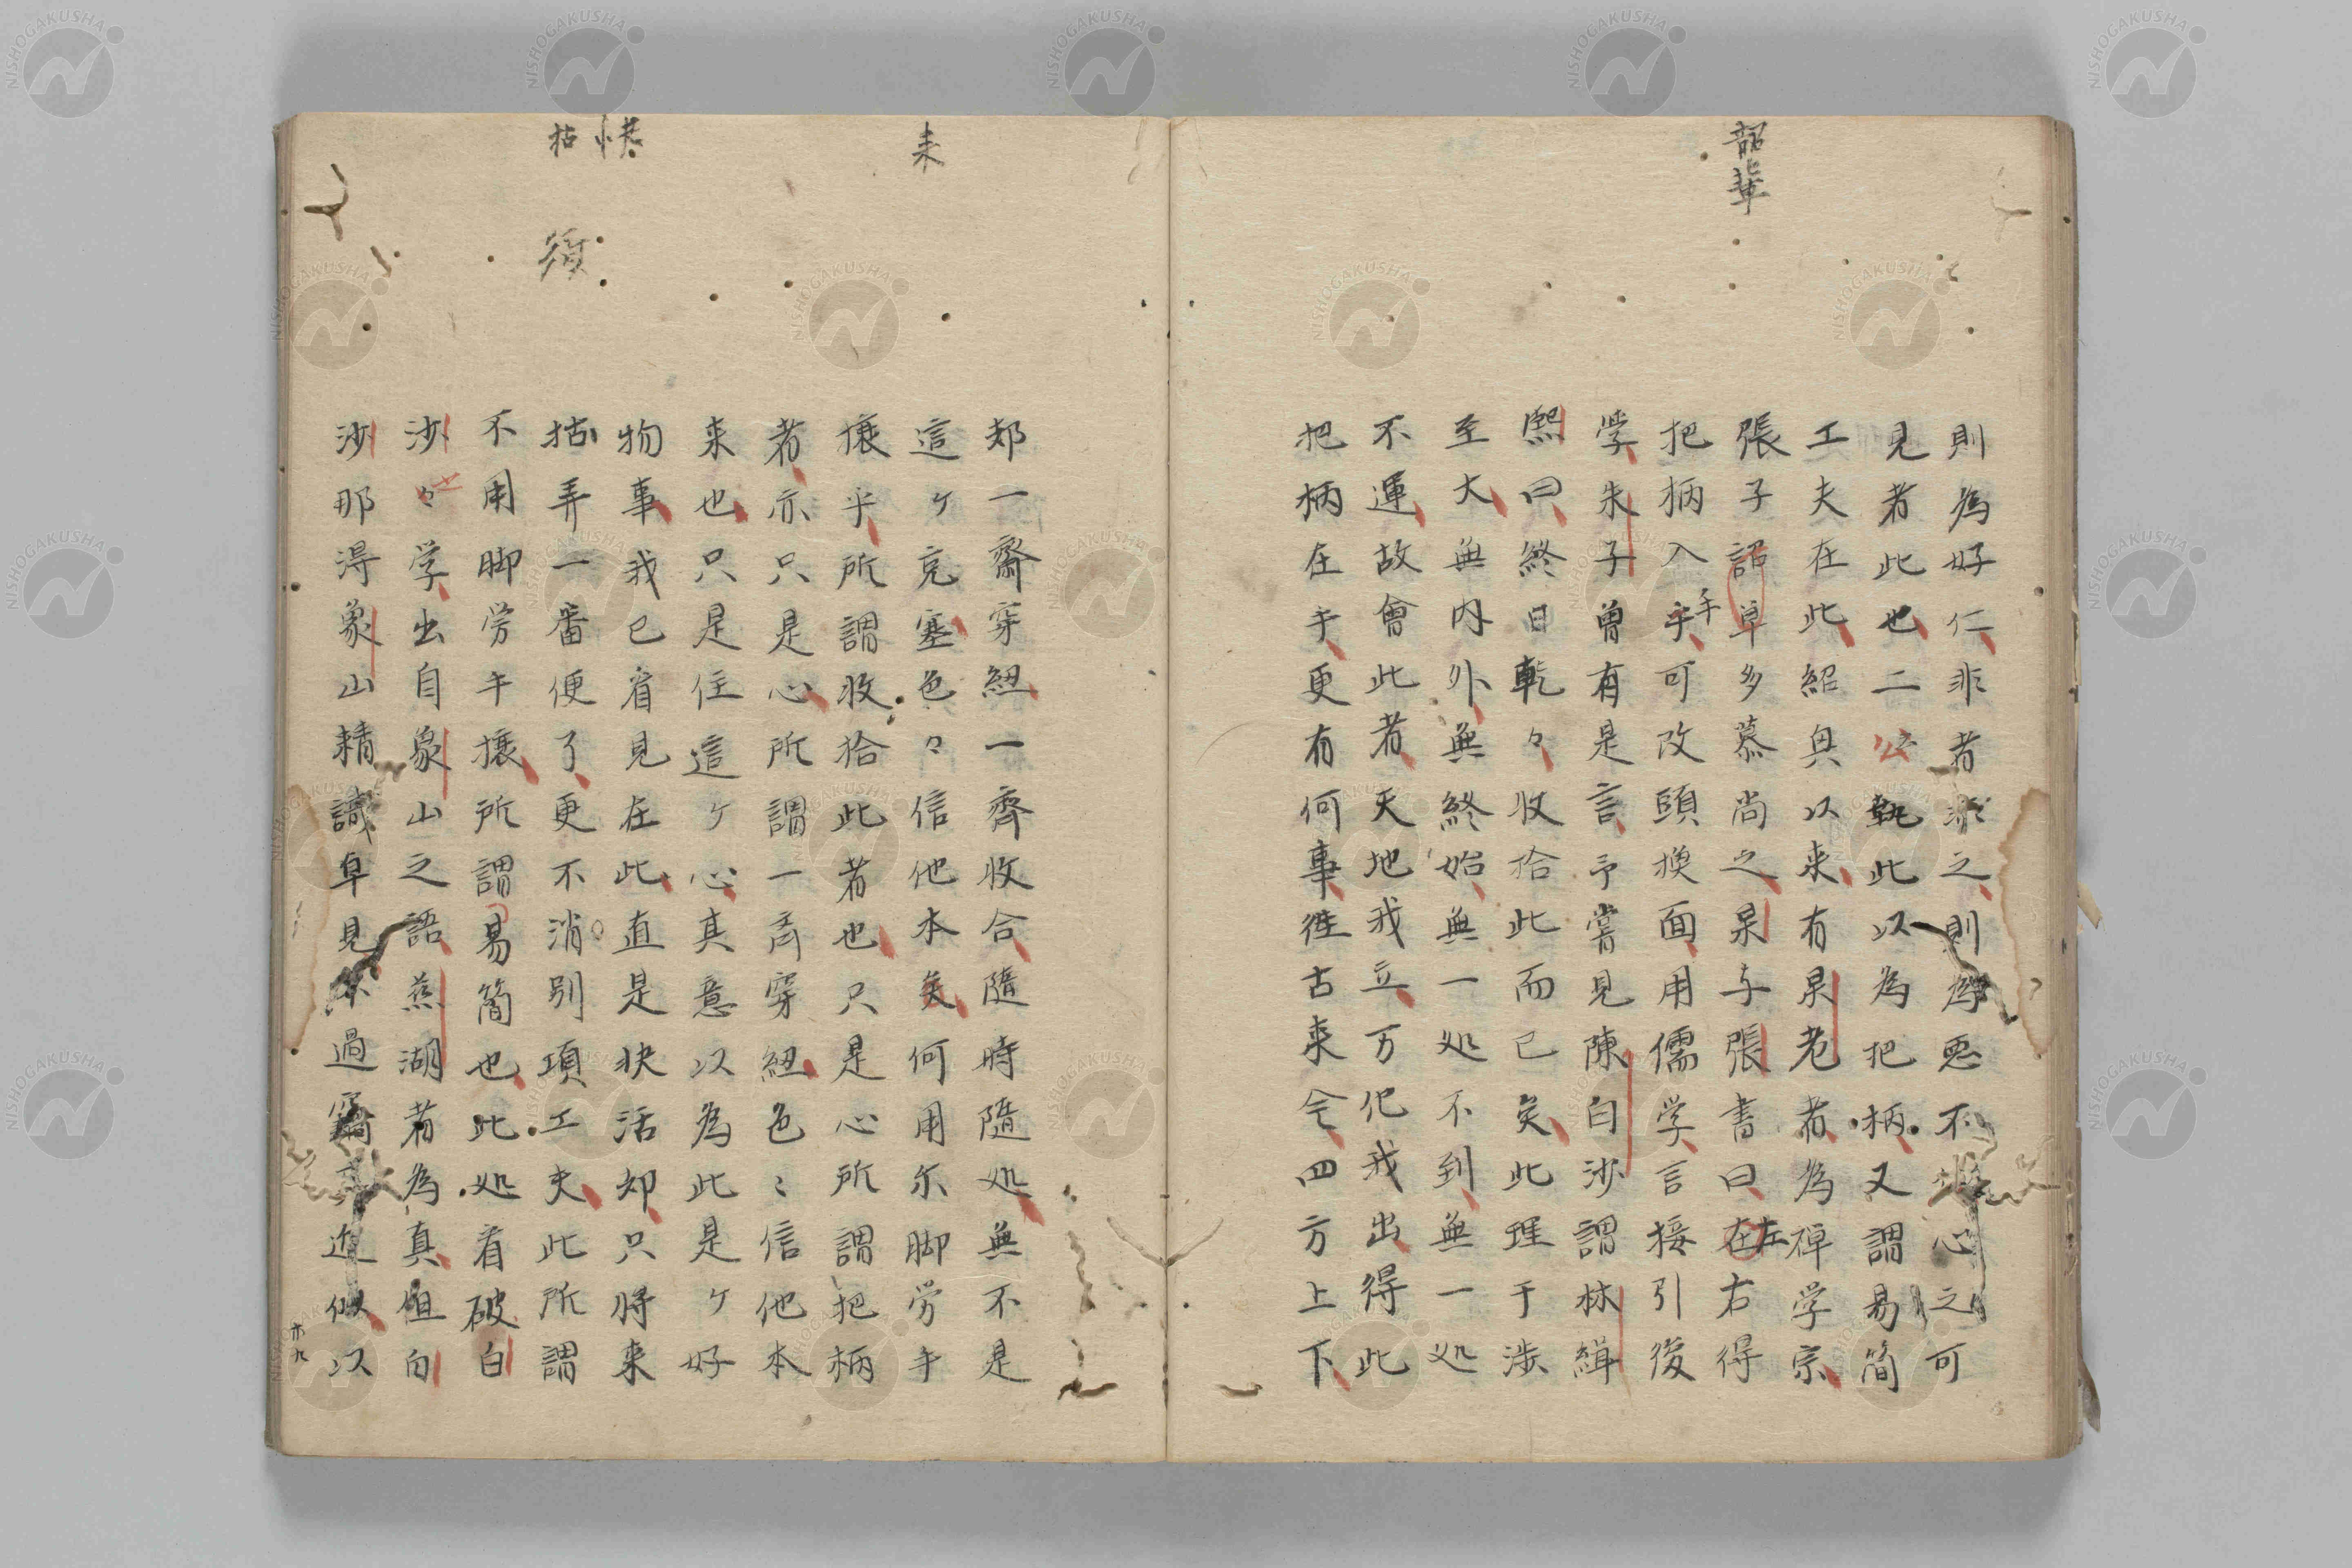 韶輩
則為好仁非者非之則為悪不 心之可
見者此也二公執此以為把柄又謂易簡
工夫在此紹興以来有杲老者為禅学宗
張子詔卓多慕尚之杲与張書曰在左右得
把柄入手手可改頭換面用儒学言接引後
学朱子曽有是言予嘗見陳白沙謂林緝
熙曰終日乾々収拾此而已矣此理于渉
至大無内外無終始無一処不到無一処
不運故會此者天地我立万化我出得此
把柄在手更有何事徃古来今四方上下
来
恷
拈
須
却一齋穿紐一齊收合隨時隨処無不是
這ヶ克塞色々信他本矣何用尓脚労手
攘乎所謂收拾此者也只是心所謂把柄
者亦只是心所謂一斉穿紐色々信他本
来也只是住這ヶ心真意以為此是ヶ好
物事我已省見在此直是快活却只将来
拈弄一番便了更不消別項工夫此所謂
不用脚労手攘所謂易簡也此処看破白
沙々学出自象山之語燕湖者為真但白
沙那得象山精識卓見不過 近似以
六九
NISHOGAKUSHA